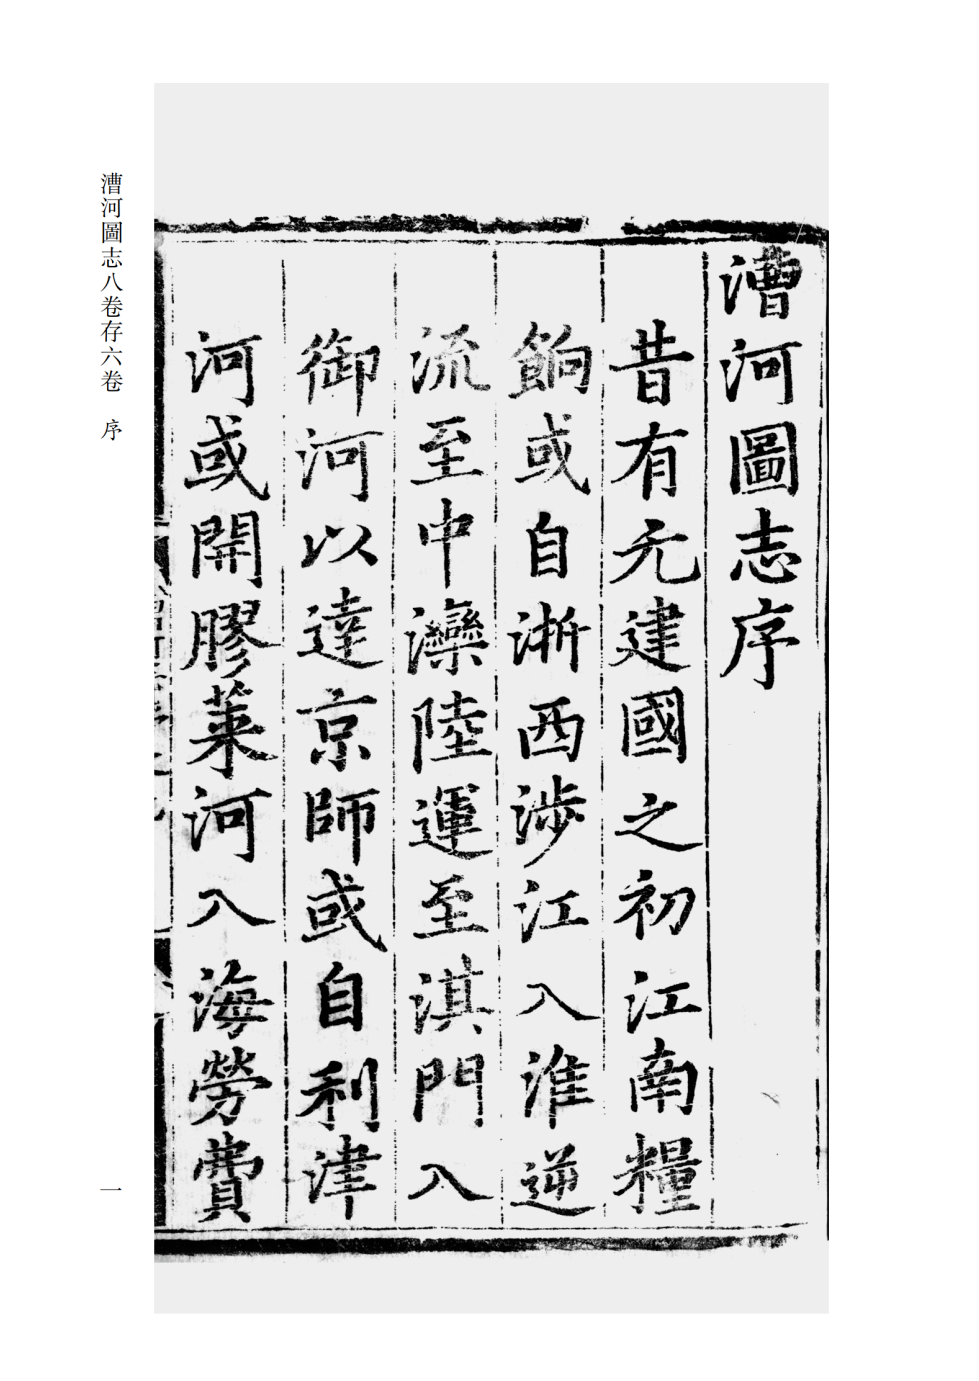 漕河圖志序
昔有元建國之初江南糧
餉或自浙西涉江入淮逆
流至中灤陸運至淇門入
御河以達京師或自利津
河或開膠萊河入海勞費
漕河圖志八卷存六卷 序
一